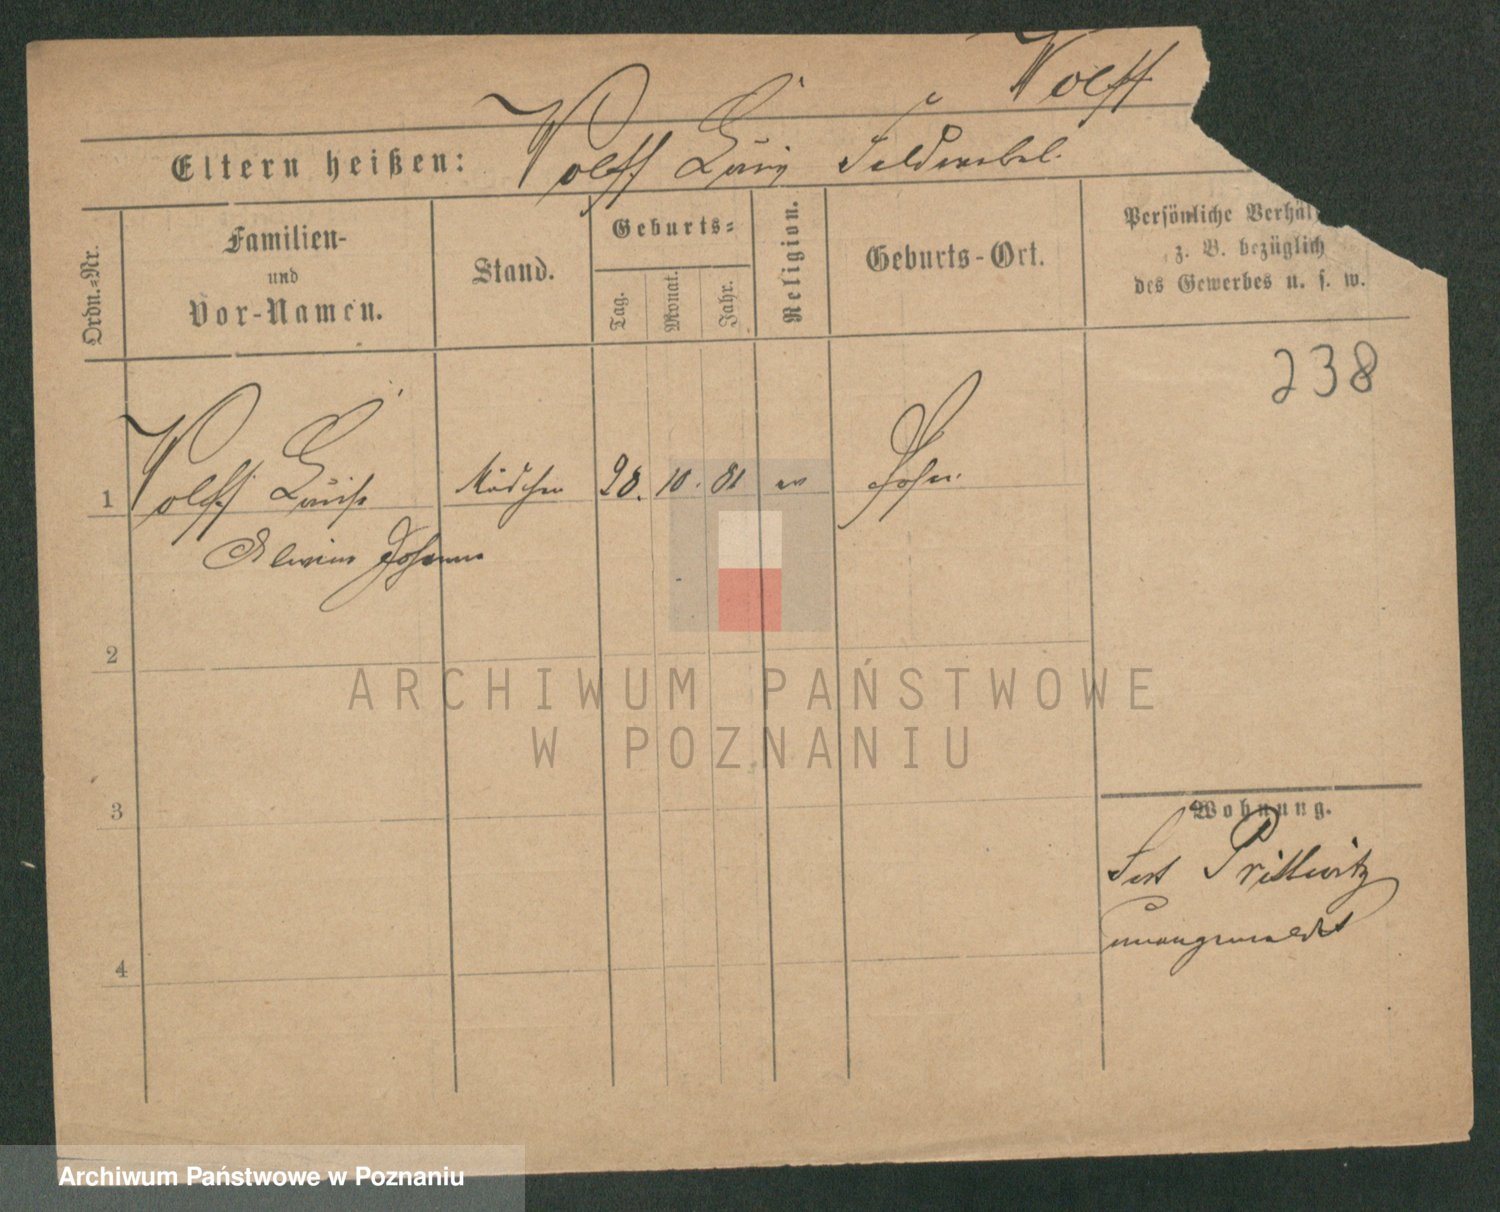 Wolff
Eltern heißen: Wolff Louis Feldwebel.
Ordn.=Nr.
Familien-
und
Vor-Namen.
Stand.
Geburts=
Tag.
Monat.
Jahr.
Religion.
Geburts-Ort.
Persönliche Verhäl
z. B. bezüglich
des Gewerbes u. s. w.
238
1 Wolff Louise Mädchen 28. 10. 81 ev Posen.
Johanna
2
3
4
Wohnung.
Fort Prittwitz
ARCHIWUM PAŃSTWOWE
W POZNANIU
Archiwum Państwowe w Poznaniu